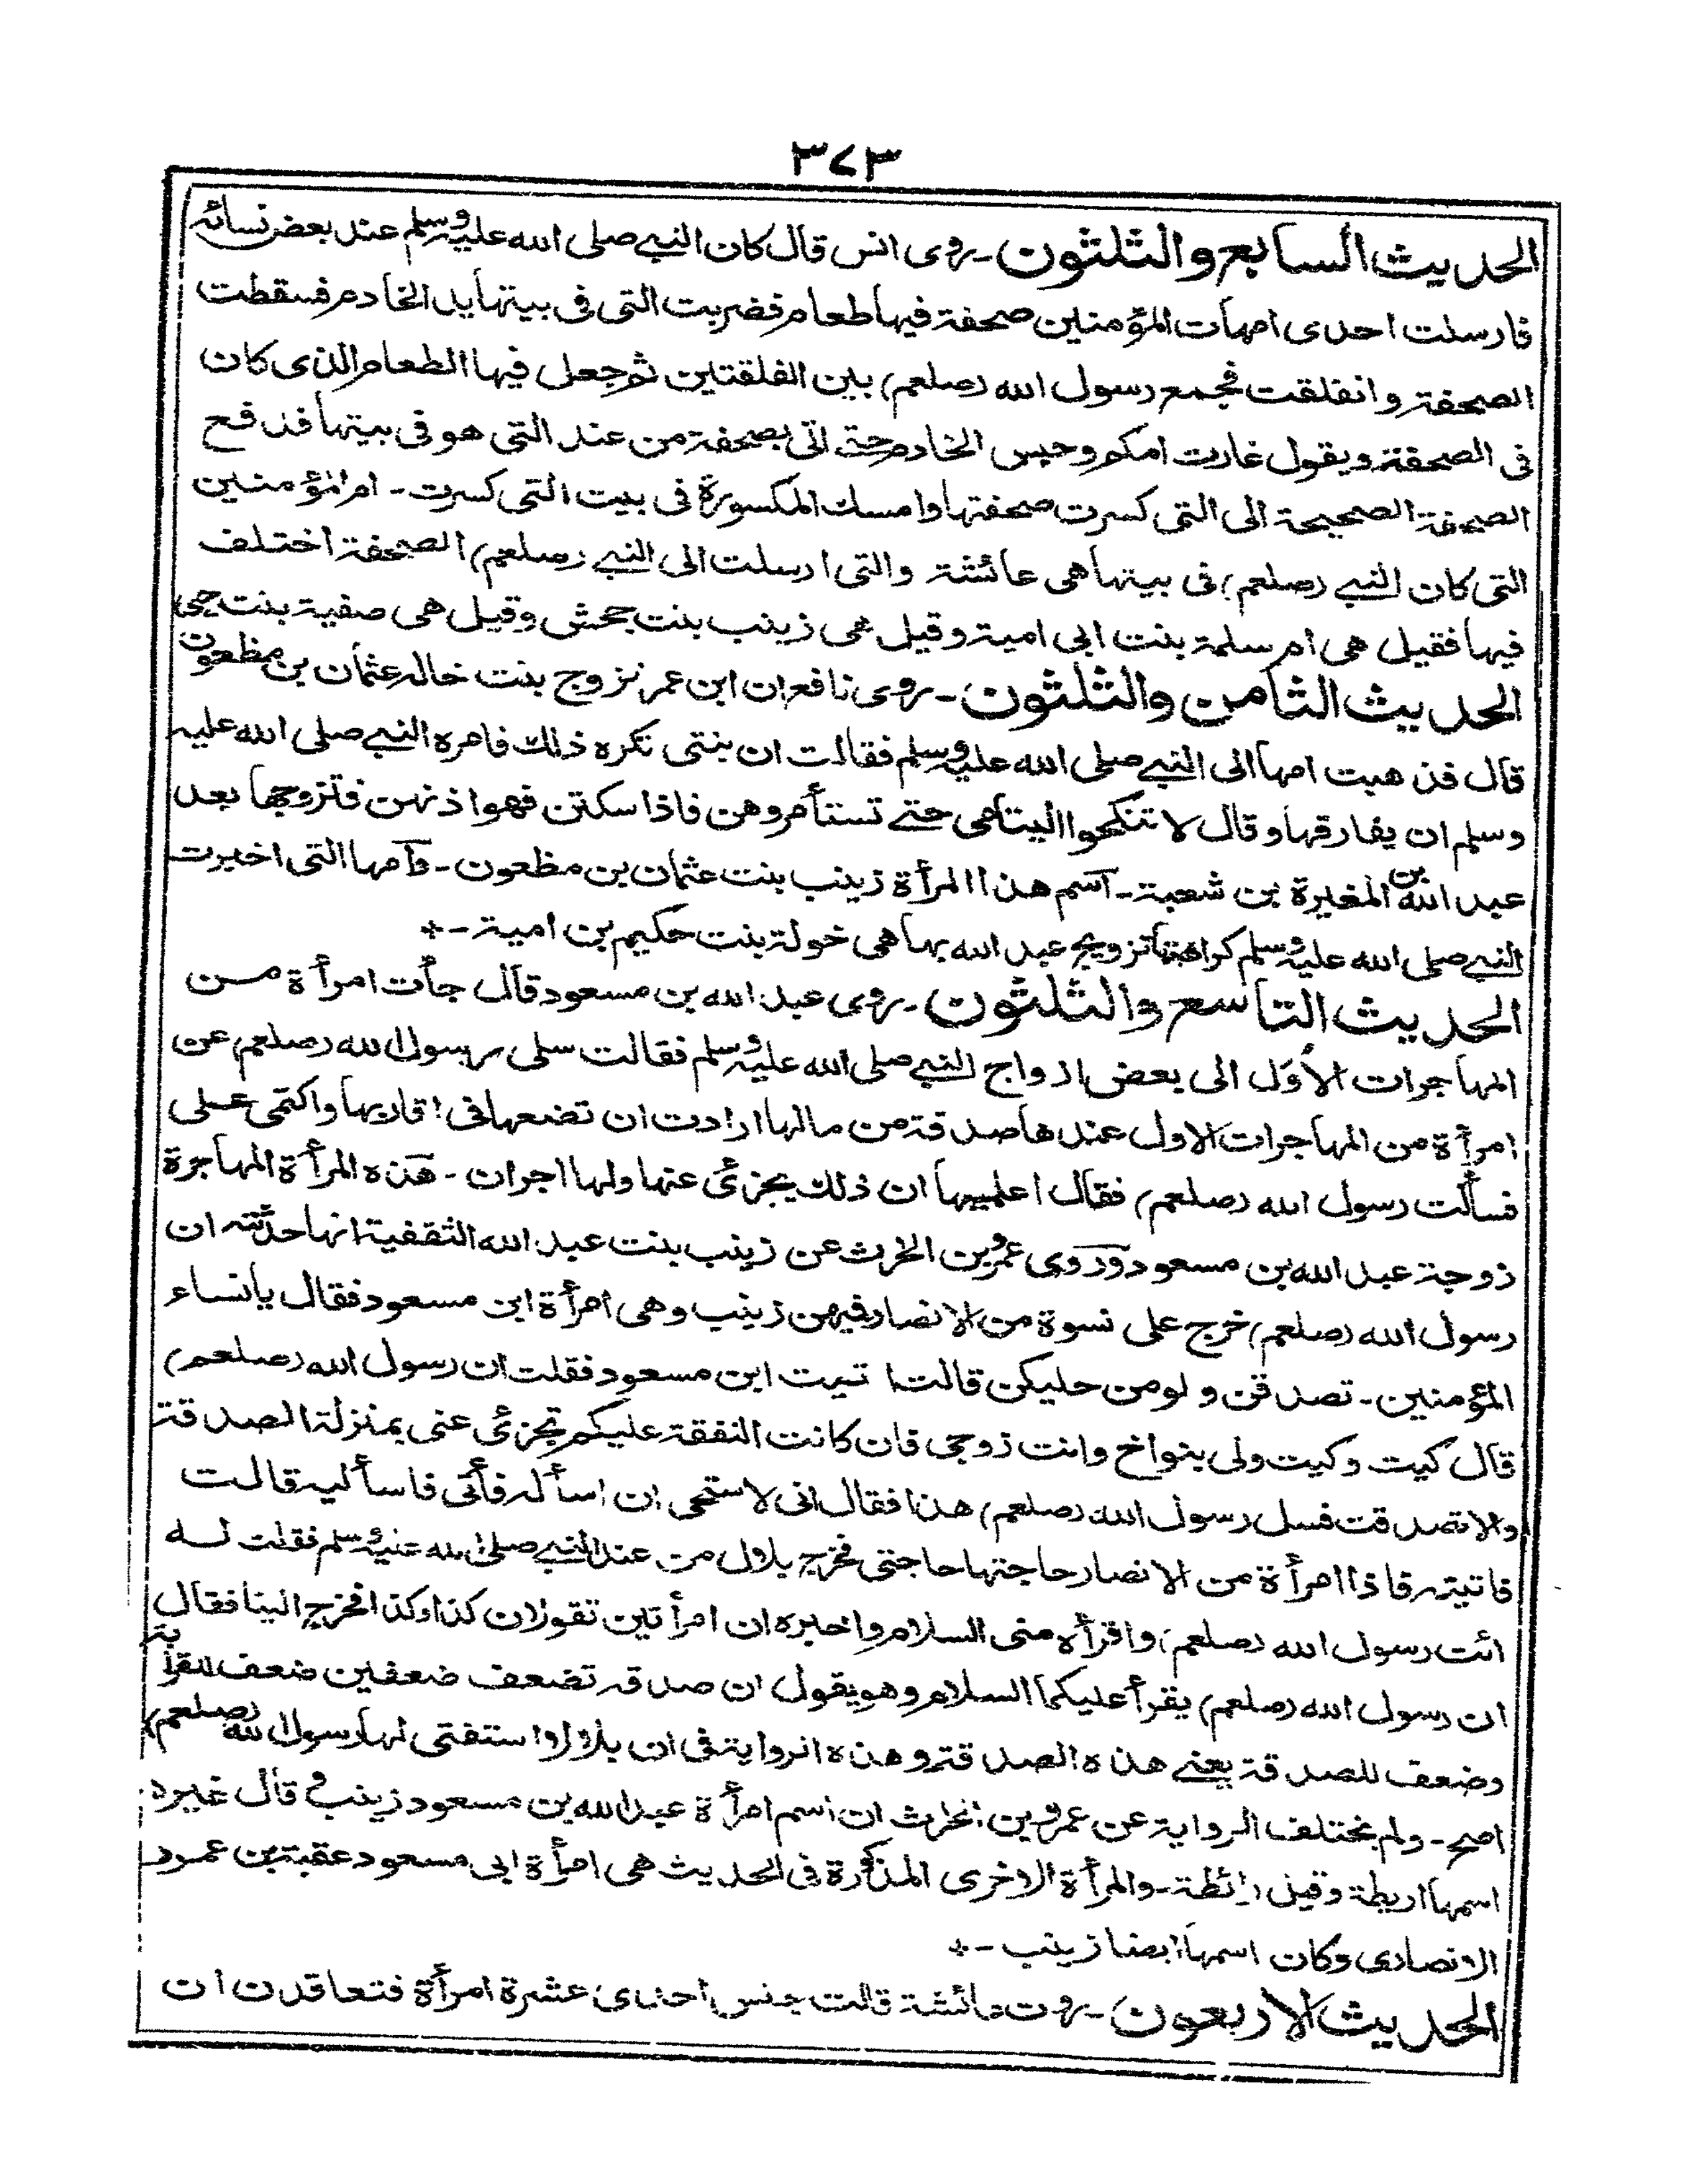 ٣٧٣
الحديث السابع والثلثون ـ روى انس قال كان النبي صلى الله عليه وسلم عند بعض نسائه
فارسلت احدى امهات المؤمنين صحفة فيها طعام فضربت التى فى بيتها يد الخادم فسقطت
الصحفة وانفلقت فجمع رسول الله (صلعم) بين الفلقتين ثم جعل فيها الطعام الذى كان
فى الصحفة ويقول غارت امكم وحبس الخادم حتى اتى بصحفة من عند التى هو فى بيتها فدفع
الصحفة الصحيحة الى التى كسرت صحفتها وامسك المكسورة فى بيت التى كسرت ـ ام المؤمنين
التى كان النبي (صلعم) فى بيتها هى عائشة والتى ارسلت الى النبي (صلعم) الصحفة اختلف
فيها فقيل هى ام سلمة بنت ابى امية وقيل هى زينب بنت جحش وقيل هى صفية بنت حيى
الحديث الثامن والثلثون ـ روى نافع ان ابن عمر تزوج بنت خاله عثمان بن مظعون
قال فذهبت امها الى النبي صلى الله عليه وسلم فقالت ان بنتى تكره ذلك فامره النبي صلى الله عليه
وسلم ان يفارقها وقال لا تنكحوا اليتامى حتى تستأمروهن فاذا سكتن فهو اذنهن فتزوجها بعد
عبد الله بن المغيرة بن شعبة ـ اسم هذا المرأة زينب بنت عثمان بن مظعون ـ وامها التى اخبرت
النبي صلى الله عليه وسلم كراهتها تزويج عبد الله بها هى خولة بنت حكيم بن امية ـ
الحديث التاسع والثلثون ـ روى عبد الله بن مسعود قال جأت امرأة من
المهاجرات الأول الى بعض ازواج النبي صلى الله عليه وسلم فقالت سلى رسول الله (صلعم) عن
امرأة من المهاجرات الاول عندها صدقة من مالها ارادت ان تضعها فى اقاربها واكتمى على
فسألت رسول الله (صلعم) فقال اعلميها ان ذلك يجزئ عنها ولها اجران ـ هذه المرأة المهاجرة
زوجة عبد الله بن مسعود وروى عمرو بن الحرث عن زينب بنت عبد الله الثقفية انها حدثته ان
رسول الله (صلعم) خرج على نسوة من الانصار فيهن زينب وهى امرأة ابن مسعود فقال يا نساء
المؤمنين ـ تصدقن ولو من حليكن قالت اتيت ابن مسعود فقلت ان رسول الله (صلعم)
قال كيت وكيت ولى بنو اخ وانت زوجى فان كانت النفقة عليكم تجزئ عنى بمنزلة الصدقة
والا تصدقت فسل رسول الله (صلعم) هذا فقال انى لاستحى ان اسأله فأتى فاسأليه قالت
فاتيته فاذا امرأة من الانصار حاجتها حاجتى فخرج بلال من عند النبي صلى الله عليه وسلم فقلت له
ائت رسول الله (صلعم) واقرأه منى السلام واخبره ان امرأتين تقولان كذا وكذا فخرج الينا فقال
ان رسول الله (صلعم) يقرأ عليكما السلام وهو يقول ان صدقه تضعف ضعفين ضعف للقرابة
وضعف للصدقة يعنى هذه الصدقة وهذه الرواية فى ان بلالا استفتى لها رسول الله (صلعم)
اصح ـ ولم يختلف الرواية عن عمرو بن الحرث ان اسم امرأة عبد الله بن مسعود زينب وقال غيره
اسمها اريطة وقيل رائطة ـ والمرأة الاخرى المذكورة فى الحديث هى امرأة ابى مسعود عقبة بن عمرو
الانصارى وكان اسمها ايضا زينب ـ
الحديث الاربعون ـ روت عائشة قالت جلس احدى عشرة امرأة فتعاقدن ان